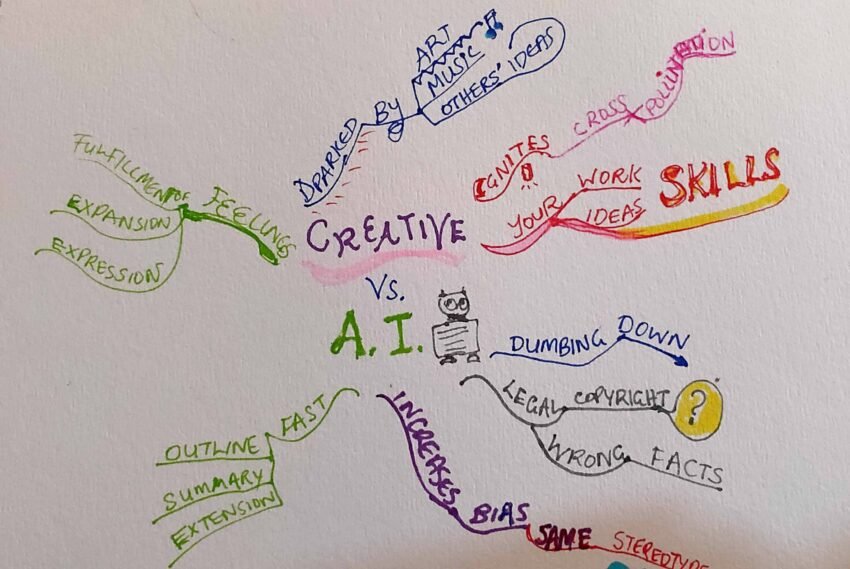 DPARKED BY
ART
MUSIC
OTHERS' IDEAS
IGNITES
CROSS
POLLINATION
YOUR
WORK
IDEAS
SKILLS
FEELINGS
FULFILLMENT
EXPANSION
EXPRESSION
CREATIVE
VS.
A.I.
DUMBING DOWN
LEGAL
COPYRIGHT
?
WRONG FACTS
INCREASES
BIAS
SAME
STEREOTYPE
FAST
OUTLINE
SUMMARY
EXTENSION